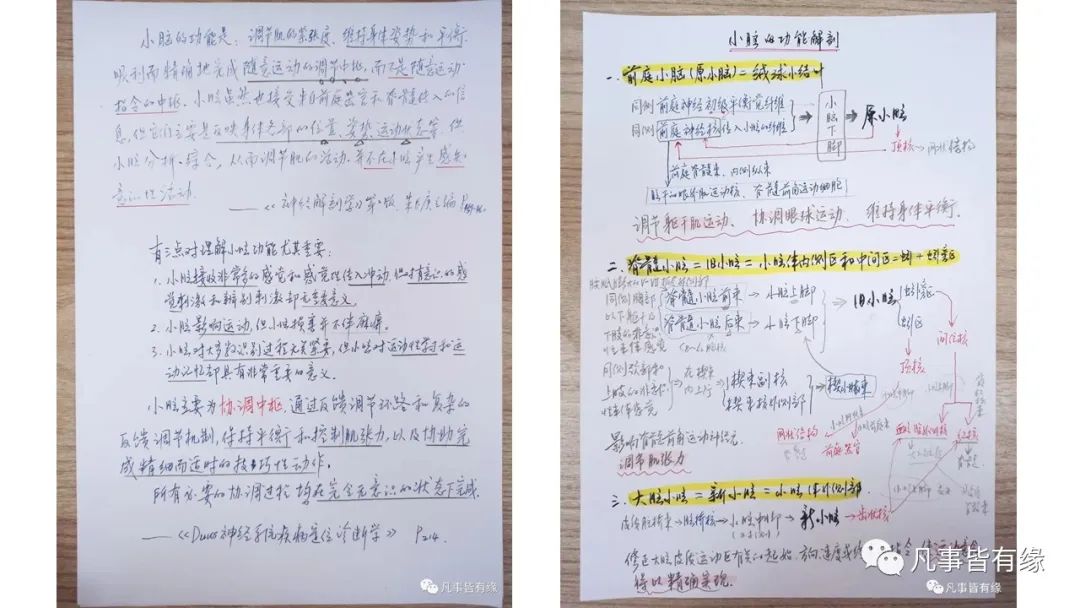 小脑的功能是：调节肌的紧张度、维持身体姿势和平衡。
顺利而精确地完成随意运动的调节中枢，而不是随意运动
指令的中枢。小脑虽然也接受来自前庭器官和脊髓传入的信
息，但它们主要是反映身体各部的位置、姿势、运动状态等，经
小脑分析、综合，从而调节肌的活动，并不在小脑产生感知
意识性活动。
——《神经解剖学》第 版，朱长庚主编
有三点对理解小脑功能尤其重要：
1. 小脑接收非常多的感觉和感觉性传入冲动，但对有意识的感
觉刺激和辨别刺激却无重要意义。
2. 小脑影响运动，但小脑损害并不使麻痹。
3. 小脑对大多数识别过程无关紧要，但小脑对运动性学习和运
动记忆却具有非常重要的意义。
小脑主要为协调中枢，通过反馈调节环路和复杂的
反馈调节机制，保持平衡和控制肌张力，以及协助完
成精细而适时的技巧性动作。
所有必要的协调过程均在完全无意识的状态下完成。
——《Duus神经系统疾病定位诊断学》 P214.
凡事皆有缘
小脑的功能解剖
一、前庭小脑(原小脑)=绒球小结叶
同侧前庭神经初级平衡觉纤维
同侧前庭神经核传入小脑的纤维
小脑下脚
原小脑
顶核→网状结构
前庭脊髓束、内侧纵束
脑干的眼外肌运动核、脊髓前角运动细胞
调节躯干肌运动、协调眼球运动、维持身体平衡。
二、脊髓小脑=旧小脑=小脑体内侧区和中间区=蚓+蚓旁区
同侧胸部
以下躯干和
下肢的非意识
性本体感觉
脊髓小脑前束→小脑上脚
脊髓小脑后束→小脑下脚
旧小脑
蚓旁区
蚓区
间位核
顶核
同侧颈部和
上肢的非意识
性本体感觉
在楔束
内上行
楔束副核
楔束核外侧部
楔小脑束
影响脊髓前角运动神经元。
调节肌张力
网状结构
前庭神经核
红核
三、大脑小脑=新小脑=小脑体外侧部
皮质脑桥束→脑桥核→小脑中脚→新小脑→齿状核
(对侧)
修正大脑皮质运动区有关的起始、方向、速度或终
得以精确实现。
凡事皆有缘
凡事皆有缘